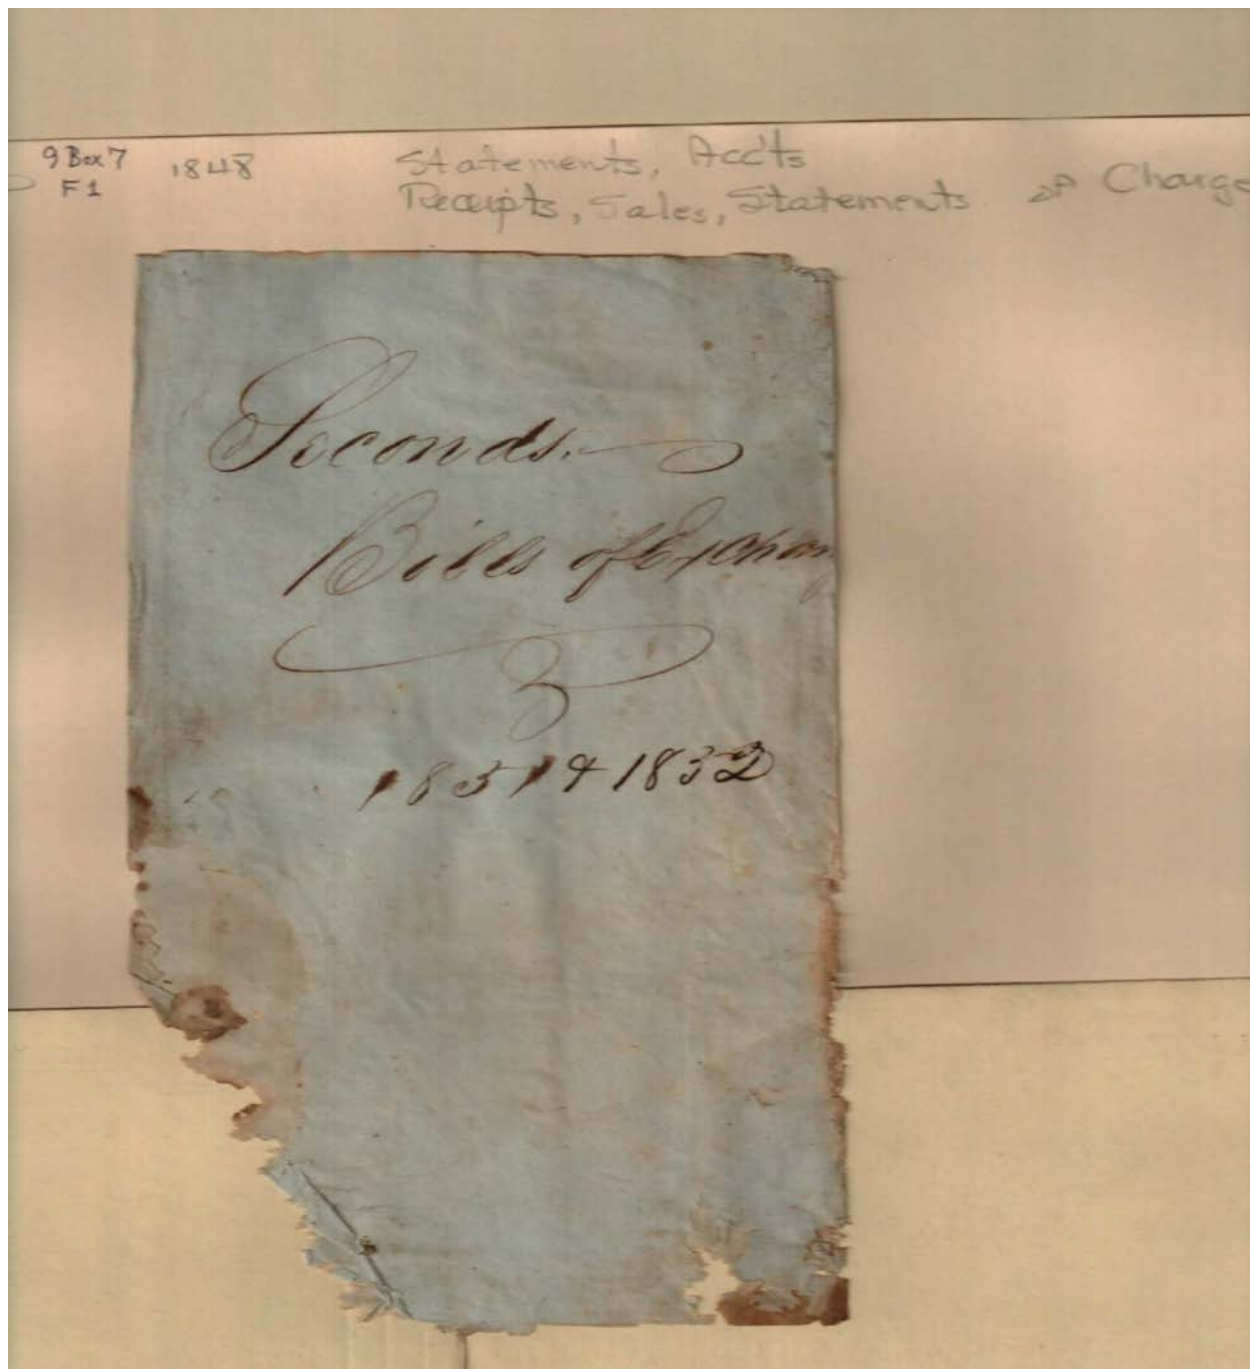 9 Box 7
F1
1848
Statements, Acc'ts
Receipts, Sales, Statements of Charge
Seconds.
Bills of Exchang
1851 & 1852